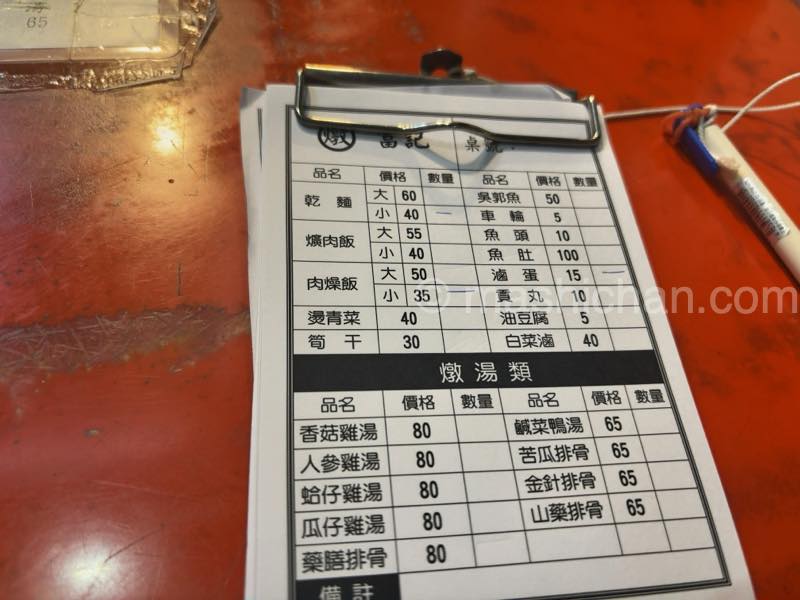 65
燉 富記 桌號：
品名 價格 數量 品名 價格 數量
乾麵 大 60 吳郭魚 50
小 40 一 車輪 5
爌肉飯 大 55 魚頭 10
小 40 魚肚 100
肉燥飯 大 50 滷蛋 15 一
小 35 一 貢丸 10
燙青菜 40 油豆腐 5
筍干 30 白菜滷 40
燉湯類
品名 價格 數量 品名 價格 數量
香菇雞湯 80 鹹菜鴨湯 65
人參雞湯 80 苦瓜排骨 65
蛤仔雞湯 80 金針排骨 65
瓜仔雞湯 80 山藥排骨 65
藥膳排骨 80
備註
© meshichan.com